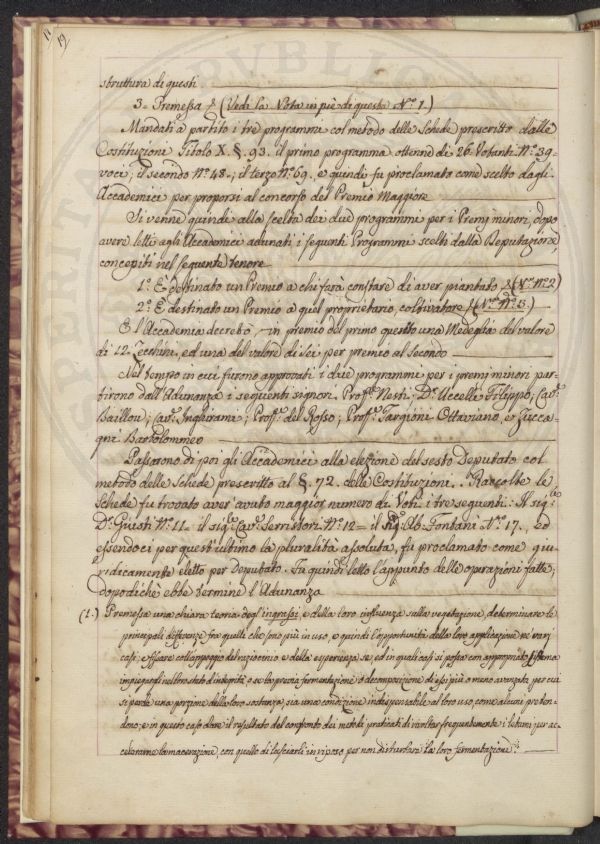 struttura di questi
3= Premessa & (Vedi la Nota in piè di questa Nº. 1.)
Mandati a partito i tre programmi col metodo delle Schede prescritto dalle
Costituzioni Titolo X. §. 93. il primo programma ottenne di 26. Votanti Nº. 39=
voci; il secondo Nº. 48.; il terzo Nº. 69. e quindi fu proclamato come scelto dagli
Accademici per proporsi al concorso del Premio Maggiore
Si venne quindi alla scelta dei due programmi per i Premj minori, dopo
avere letti agli Accademici adunati i seguenti Programmi scelti dalla Deputazione,
concepiti nel seguente tenore
1º. È destinato un Premio a chi farà constare di aver piantato, & (Vº. Nº. 2)
2º. È destinato un Premio a quel proprietario, coltivatore & (Vº. Nº. 3.)
E l'Accademia decretò, in premio del primo questo una Medaglia del valore
di 12. Zecchini, ed una del valore di Sei per premio al Secondo
Nel tempo in cui furono approvati i due programmi per i premj minori par-
tirono dall'Adunanza i seguenti Signori. Profʳ. Nesti; Dʳ. Uccelli Filippo; Cavʳ.
Baillou; Cavʳ. Inghirami; Profʳ. del Rosso; Profʳ. Targioni Ottaviano, e Zucca-
gni Bartolommeo
Passarono di poi gli Accademici alla elezione del sesto Deputato col
metodo delle Schede prescritto al §. 72. delle Costituzioni. Raccolte le
Schede fu trovato aver avuto maggior numero di Voti i tre seguenti: Il Sigʳ.
Dʳ. Giusti Nº. 11. il Sigʳ. Cavʳ. Serristori Nº. 12= il Sigʳ. Ab. Fontani Nº. 17. ed
essendoci per quest'ultimo la pluralità assoluta, fu proclamato come giu-
ridicamente eletto per Deputato. Fu quindi letto l'appunto delle operazioni fatte,
dopodichè ebbe termine l'Adunanza
(1.) Premessa una chiara teoria degl'ingrassi, e della loro influenza sulla vegetazione, determinare le
principali differenze fra quelli che sono più in uso, e quindi l'opportunità della loro applicazione ne' varj
casi, e fissare coll'appoggio del raziocinio e della esperienza se, ed in quali casi si possa con appropriato sistema
impiegargli nel loro stato d'integrità, o se la previa fermentazione o decomposizione di essi più o meno avanzata, per cui
si perde una porzione della loro sostanza, sia una condizione indispensabile al loro uso, come alcuni preten-
dono; e in questo caso dare il resultato del confronto dei metodi praticati di rivoltar frequentemente i letami per ac-
celerarne la macerazione, con quello di lasciarli in riposo per non disturbare la loro fermentazione.